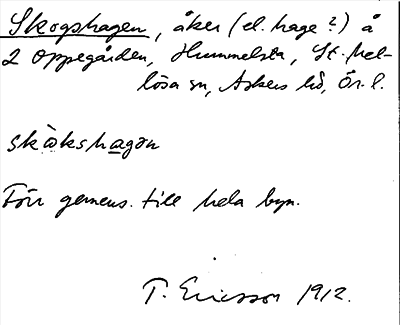 Skogshagen, åker (el. hage?) å
2 Oppegården, Hummelsta, St. Mel-
lösa sn, Askers hd, Ör. l.
skòkshagɷn
Förr gemens. till hela byn.
T. Ericsson 1912.